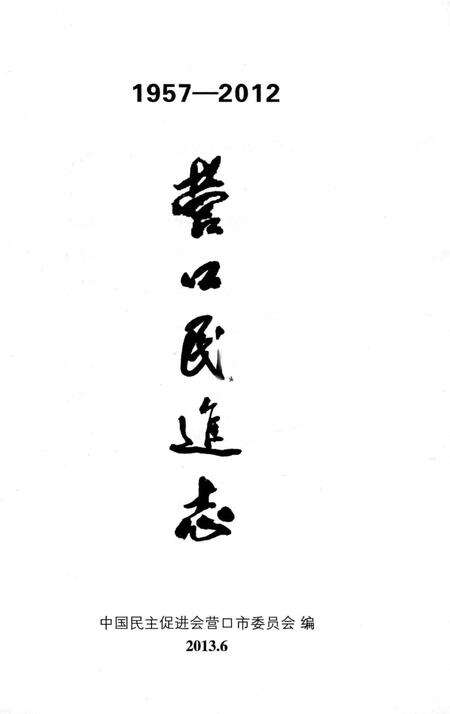 1957—2012
营口民進志
中国民主促进会营口市委员会 编
2013.6